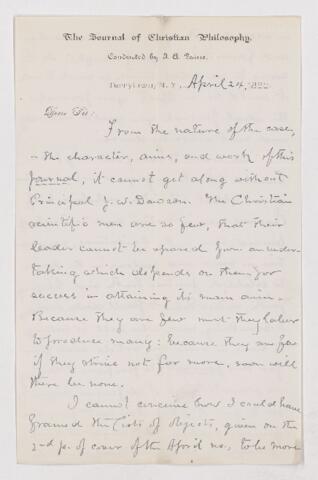 The Journal of Christian Philosophy.
Conducted by J. A. Paine.
Tarrytown, N. Y., April 24, 188
Dear Sir:
From the nature of the case,
- the character, aims, and work of this
Journal, it cannot get along without
Principal J. W. Dawson. The Christian
scientific men are so few, that their
leader cannot be spared from an under-
taking which depends on them for
success in attaining its main aim.
Because they are few must they labor
to produce many: because they are few
if they strive not for more, soon will
there be none.
I cannot conceive how I could have
framed the list of objects, given on the
2-d p. of cover of the April no., to be more